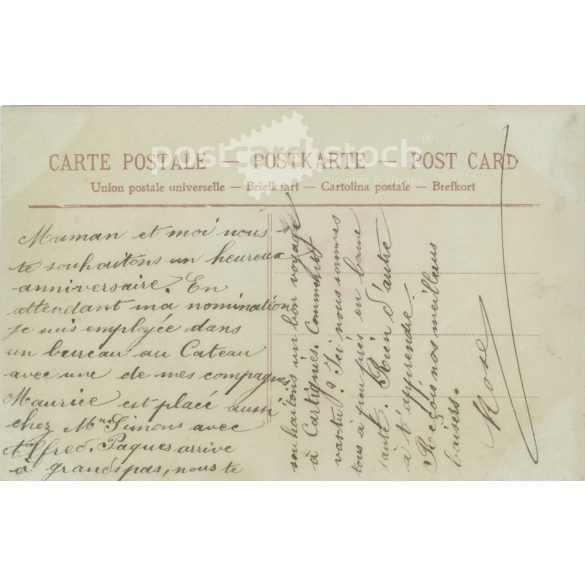 postcardstock®
CARTE POSTALE — POSTKARTE — POST CARD
Union postale universelle — Briefkaart — Cartolina postale — Brefkort
Maman et moi nous
te souhaitons un heureux
anniversaire. En
attendant ma nomination
je suis employée dans
un bureau au Cateau
avec une de mes compagnes
Maurice est placé aussi
chez Mr Simons avec
Alfred. Paques arrive
à grands pas, nous te
souhaitons un bon voyage
à Cartignies. Comment
vas-tu? Ici nous sommes
tous à peu près en bonne
santé. Rien d'autre
à t'apprendre.
Reçois nos meilleurs
baisers.
Rose